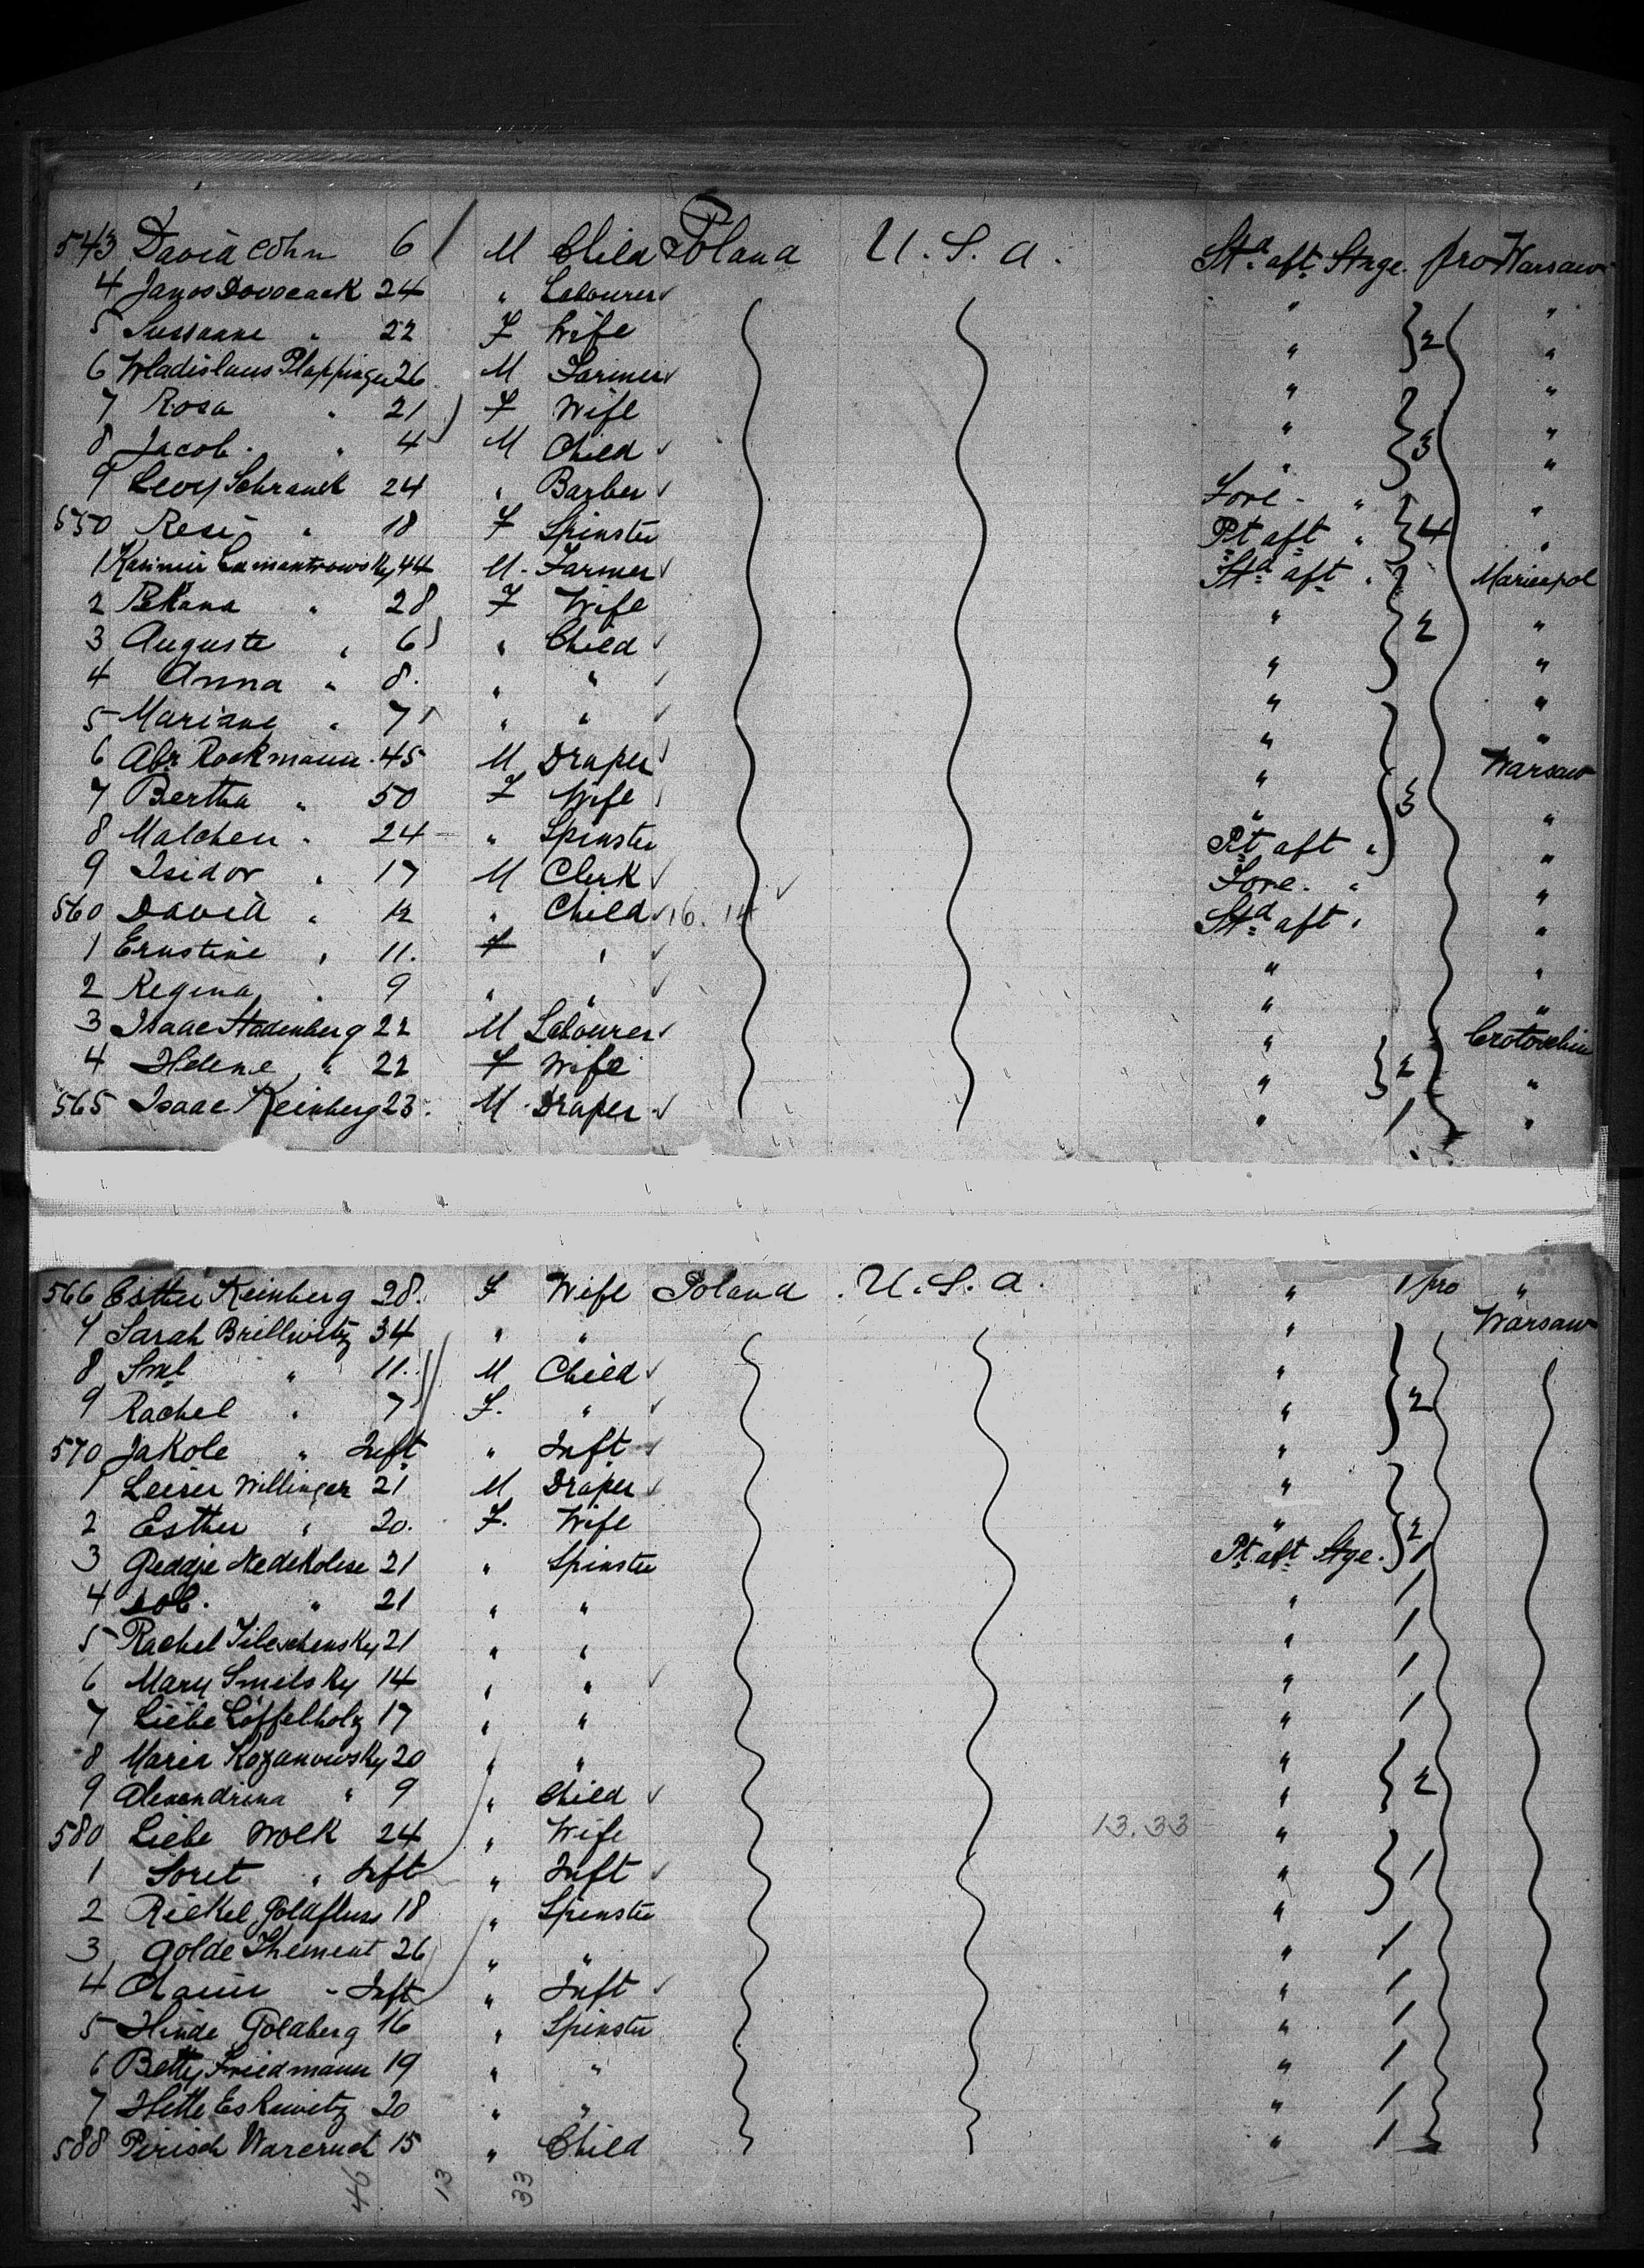 543 David Cohn 6 M Child Poland U.S.A. Stᵈ aft. Stage. pro Warsaw
4 Janos 24 " Labourer " "
5 Sussanne " 22 F Wife " } 2 "
6 Wladislaus Plappinger 26 M Farmer " "
7 Rosa " 21 F Wife " "
8 Jacob. " 4 M Child " } 3 "
9 Levy Schranck 24 " Barber Fore - " "
550 Resi " 18 F Spinster Pt aft " } 4 "
1 Kasimir 44 M - Farmer Stᵈ aft " Mariapol
2 " 28 F Wife " } 2 "
3 Auguste " 6 " Child " "
4 Anna " 8. " " " "
5 Mariane " 7 " " " "
6 Abr. Rockmann. 45 M Draper " Warsaw
7 Bertha " 50 F Wife " } 3 "
8 Malchen " 24 " Spinster Pt aft " "
9 Isidor " 17 M Clerk Fore. " "
560 David " 12 " Child 16. 14 Stᵈ aft " "
1 Ernstine " 11. F " " "
2 Regina " 9 " " " "
3 Isaac Stadenberg 22 M Labourer " Crotoschin
4 Helene " 22 F Wife " } 2 "
565 Isaac Keinberg 23. M Draper " 1 "
566 Esther Keinberg 28. F Wife Poland U.S.A. " 1 pro "
7 Sarah Brillwitz 34 " " " Warsaw
8 Sml " 11. M Child "
9 Rachel " 7 F. " " } 2
570 Jakole " Inft " Inft "
1 Leiser Willinger 21 M Draper "
2 Esther " 20. F. Wife " } 2
3 21 " Spinster Pt. aft Stge. 1
4 " 21 " " " 1
5 Rachel 21 " " " 1
6 Mary Smelsky 14 " " " 1
7 Liebe Löffelholz 17 " " " 1
8 Maria Kozanowsky 20 " " "
9 Alexandrina " 9 " Child " } 2
580 Liebe Wolk 24 " Wife 13.33 "
1 Soret " Inft " Inft " } 1
2 Rickel Goldfluss 18 " Spinster "
3 Golde Thement 26 " " " 1
4 " Inft " Inft " 1
5 Hinde Goldberg 16 " Spinster " 1
6 Betty Friedmann 19 " " " 1
7 Hette Eskewitz 20 " " " 1
588 Pirisch 15 " Child " 1
46 13 33